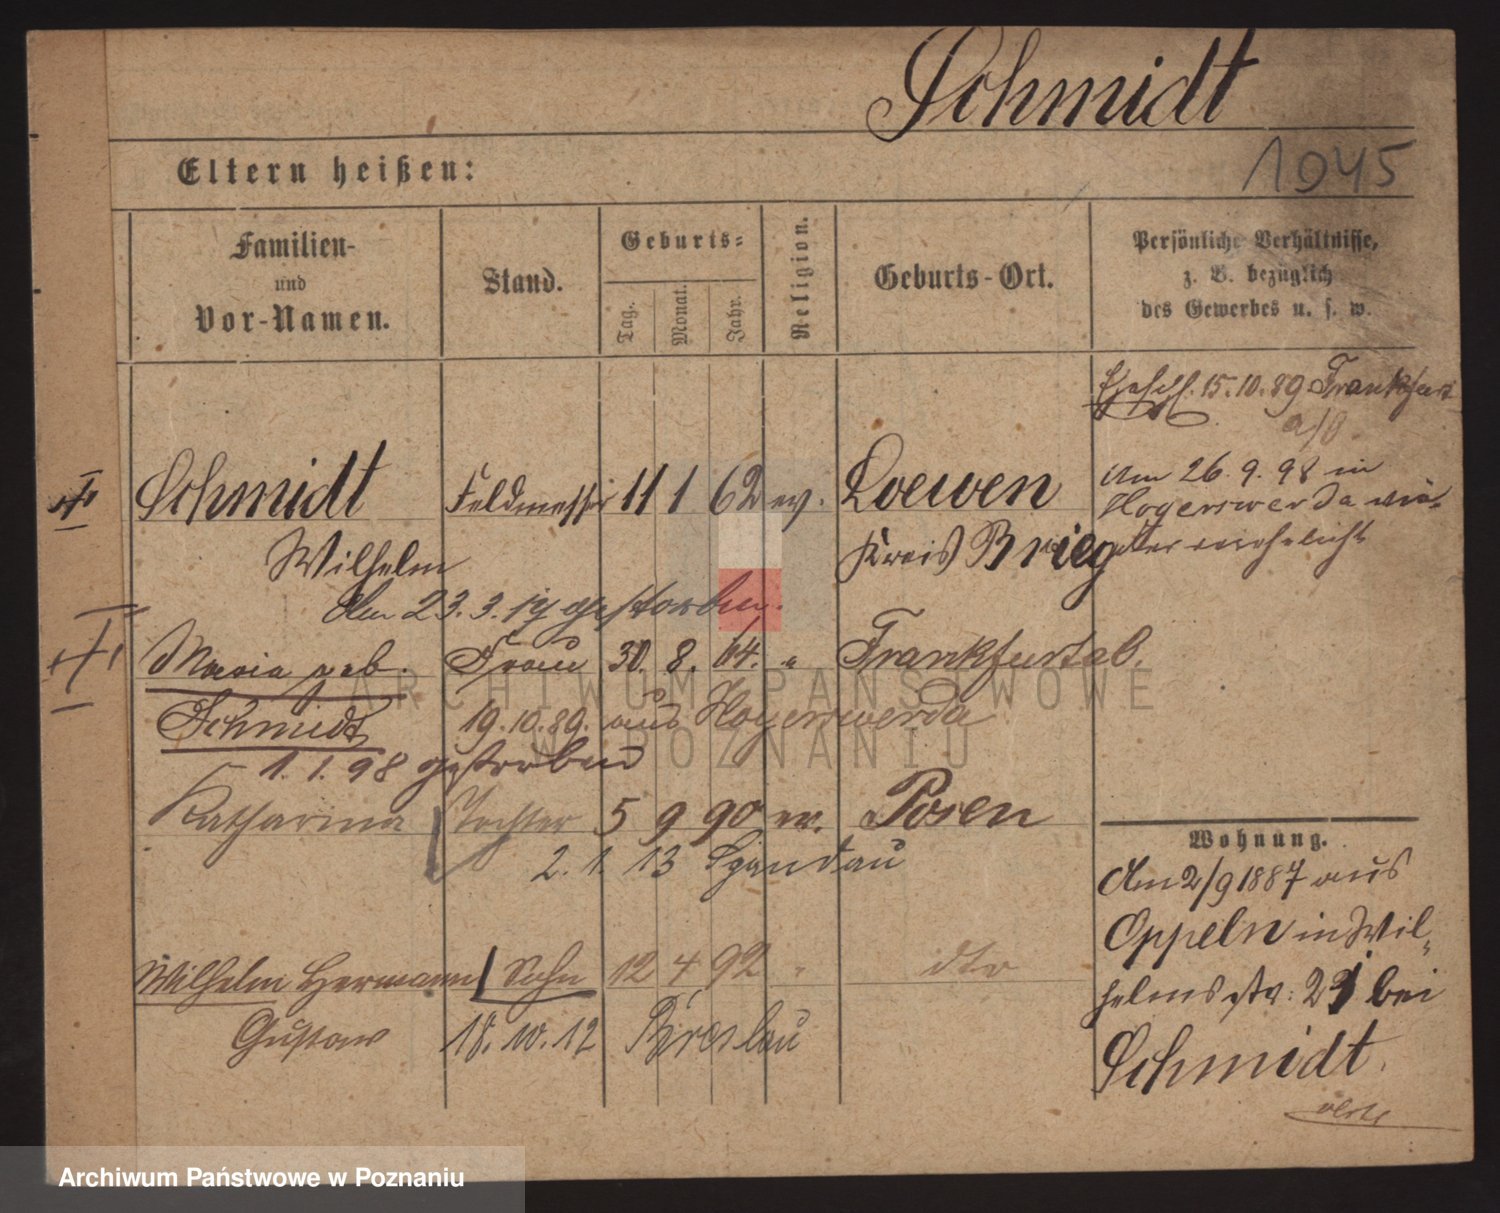 Schmidt
1045
Eltern heißen:
Familien-
und
Vor-Namen.
Stand.
Geburts-
Tag.
Monat.
Jahr.
Religion.
Geburts-Ort.
Persönliche Verhältnisse,
z. B. bezüglich
des Gewerbes u. s. w.
Eheschl. 15.10.89 Frankfurt
a/O
Am 26.9.98 in
Hoyerswerda wie-
der verehelicht
Schmidt Feldmesser 11 1 62 ev. Loewen
Wilhelm Kreis Brieg
Am 23.3.19 gestorben.
Maria geb. Frau 30. 8. 64. " Frankfurt a/O.
Schmidt 19.10.89. aus Hoyerswerda
1.1.98 gestorben
Katharina Tochter 5 9 90 ev. Posen
2.1.13 Spandau
Wilhelm Hermann Sohn 12 4 92 " dto
Gustav 18.10.12 Breslau
Wohnung.
Am 2/9 1887 aus
Oppeln in Wil-
helmsstr: 25 bei
Schmidt.
ARCHIWUM PAŃSTWOWE
W POZNANIU
Archiwum Państwowe w Poznaniu